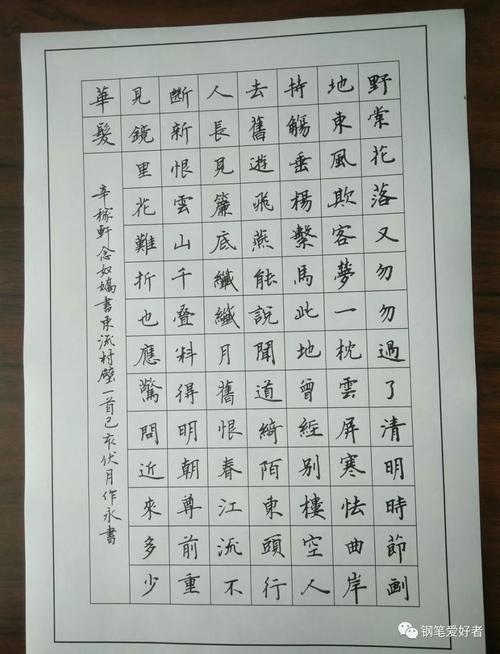 野棠花落又匆匆過了清明時節劃
地東風欺客夢一枕雲屏寒怯曲岸
持觴垂楊繫馬此地曾經別樓空人
去舊遊飛燕能說聞道綺陌東頭行
人長見簾底纖纖月舊恨春江流不
斷新恨雲山千叠料得明朝尊前重
見鏡里花難折也應驚問近來多少
華髮
辛稼軒念奴嬌書東流村壁一首己亥伏月作永書
钢笔爱好者